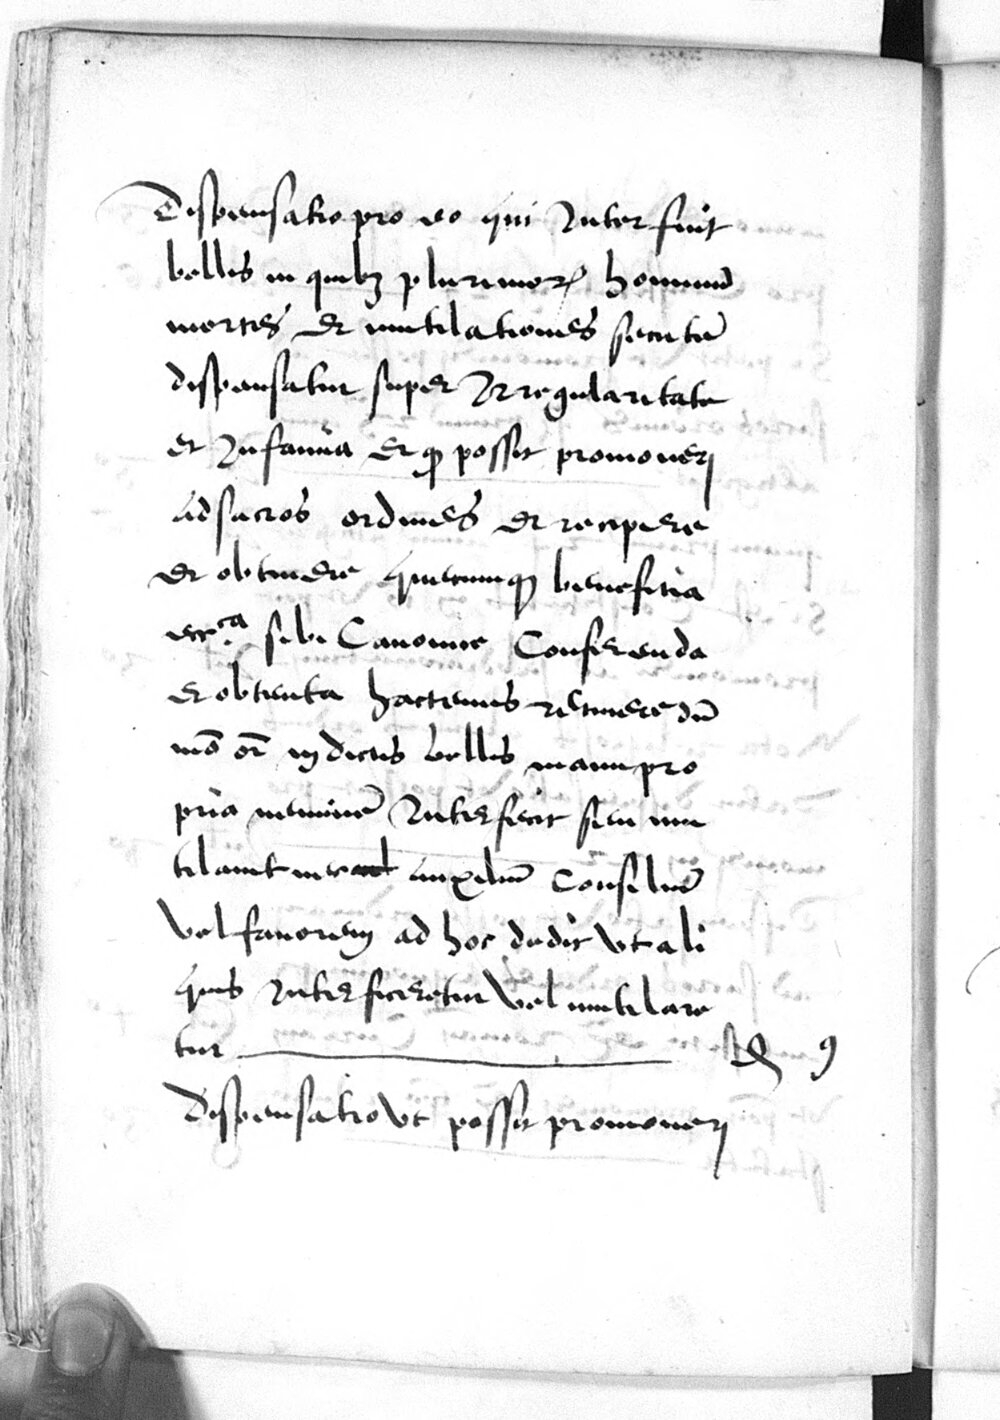 Dispensatio pro eo qui Interfuit
bellis in quibꝫ plurimoꝝ hominũ
mortes et mutilationes secute
dispensatur super Irregularitate
et Infamia et ꝙ possit promoveri
ad sacros ordines et recipere
et obtinere quecumqꝫ benefitia
ecc.ca sibi Canonice Conferenda
et obtenta hactenus retinere dũ
mõ or̃ in dictis bellis manu pro
pria neminẽ Interfecit seu mu
tilavit nec auxiliũ Consiliũ
vel favorem ad hoc dedit vt ali
quis Interficeretur vel mutilare
tur 9
Dispensatio vt possit promoveri